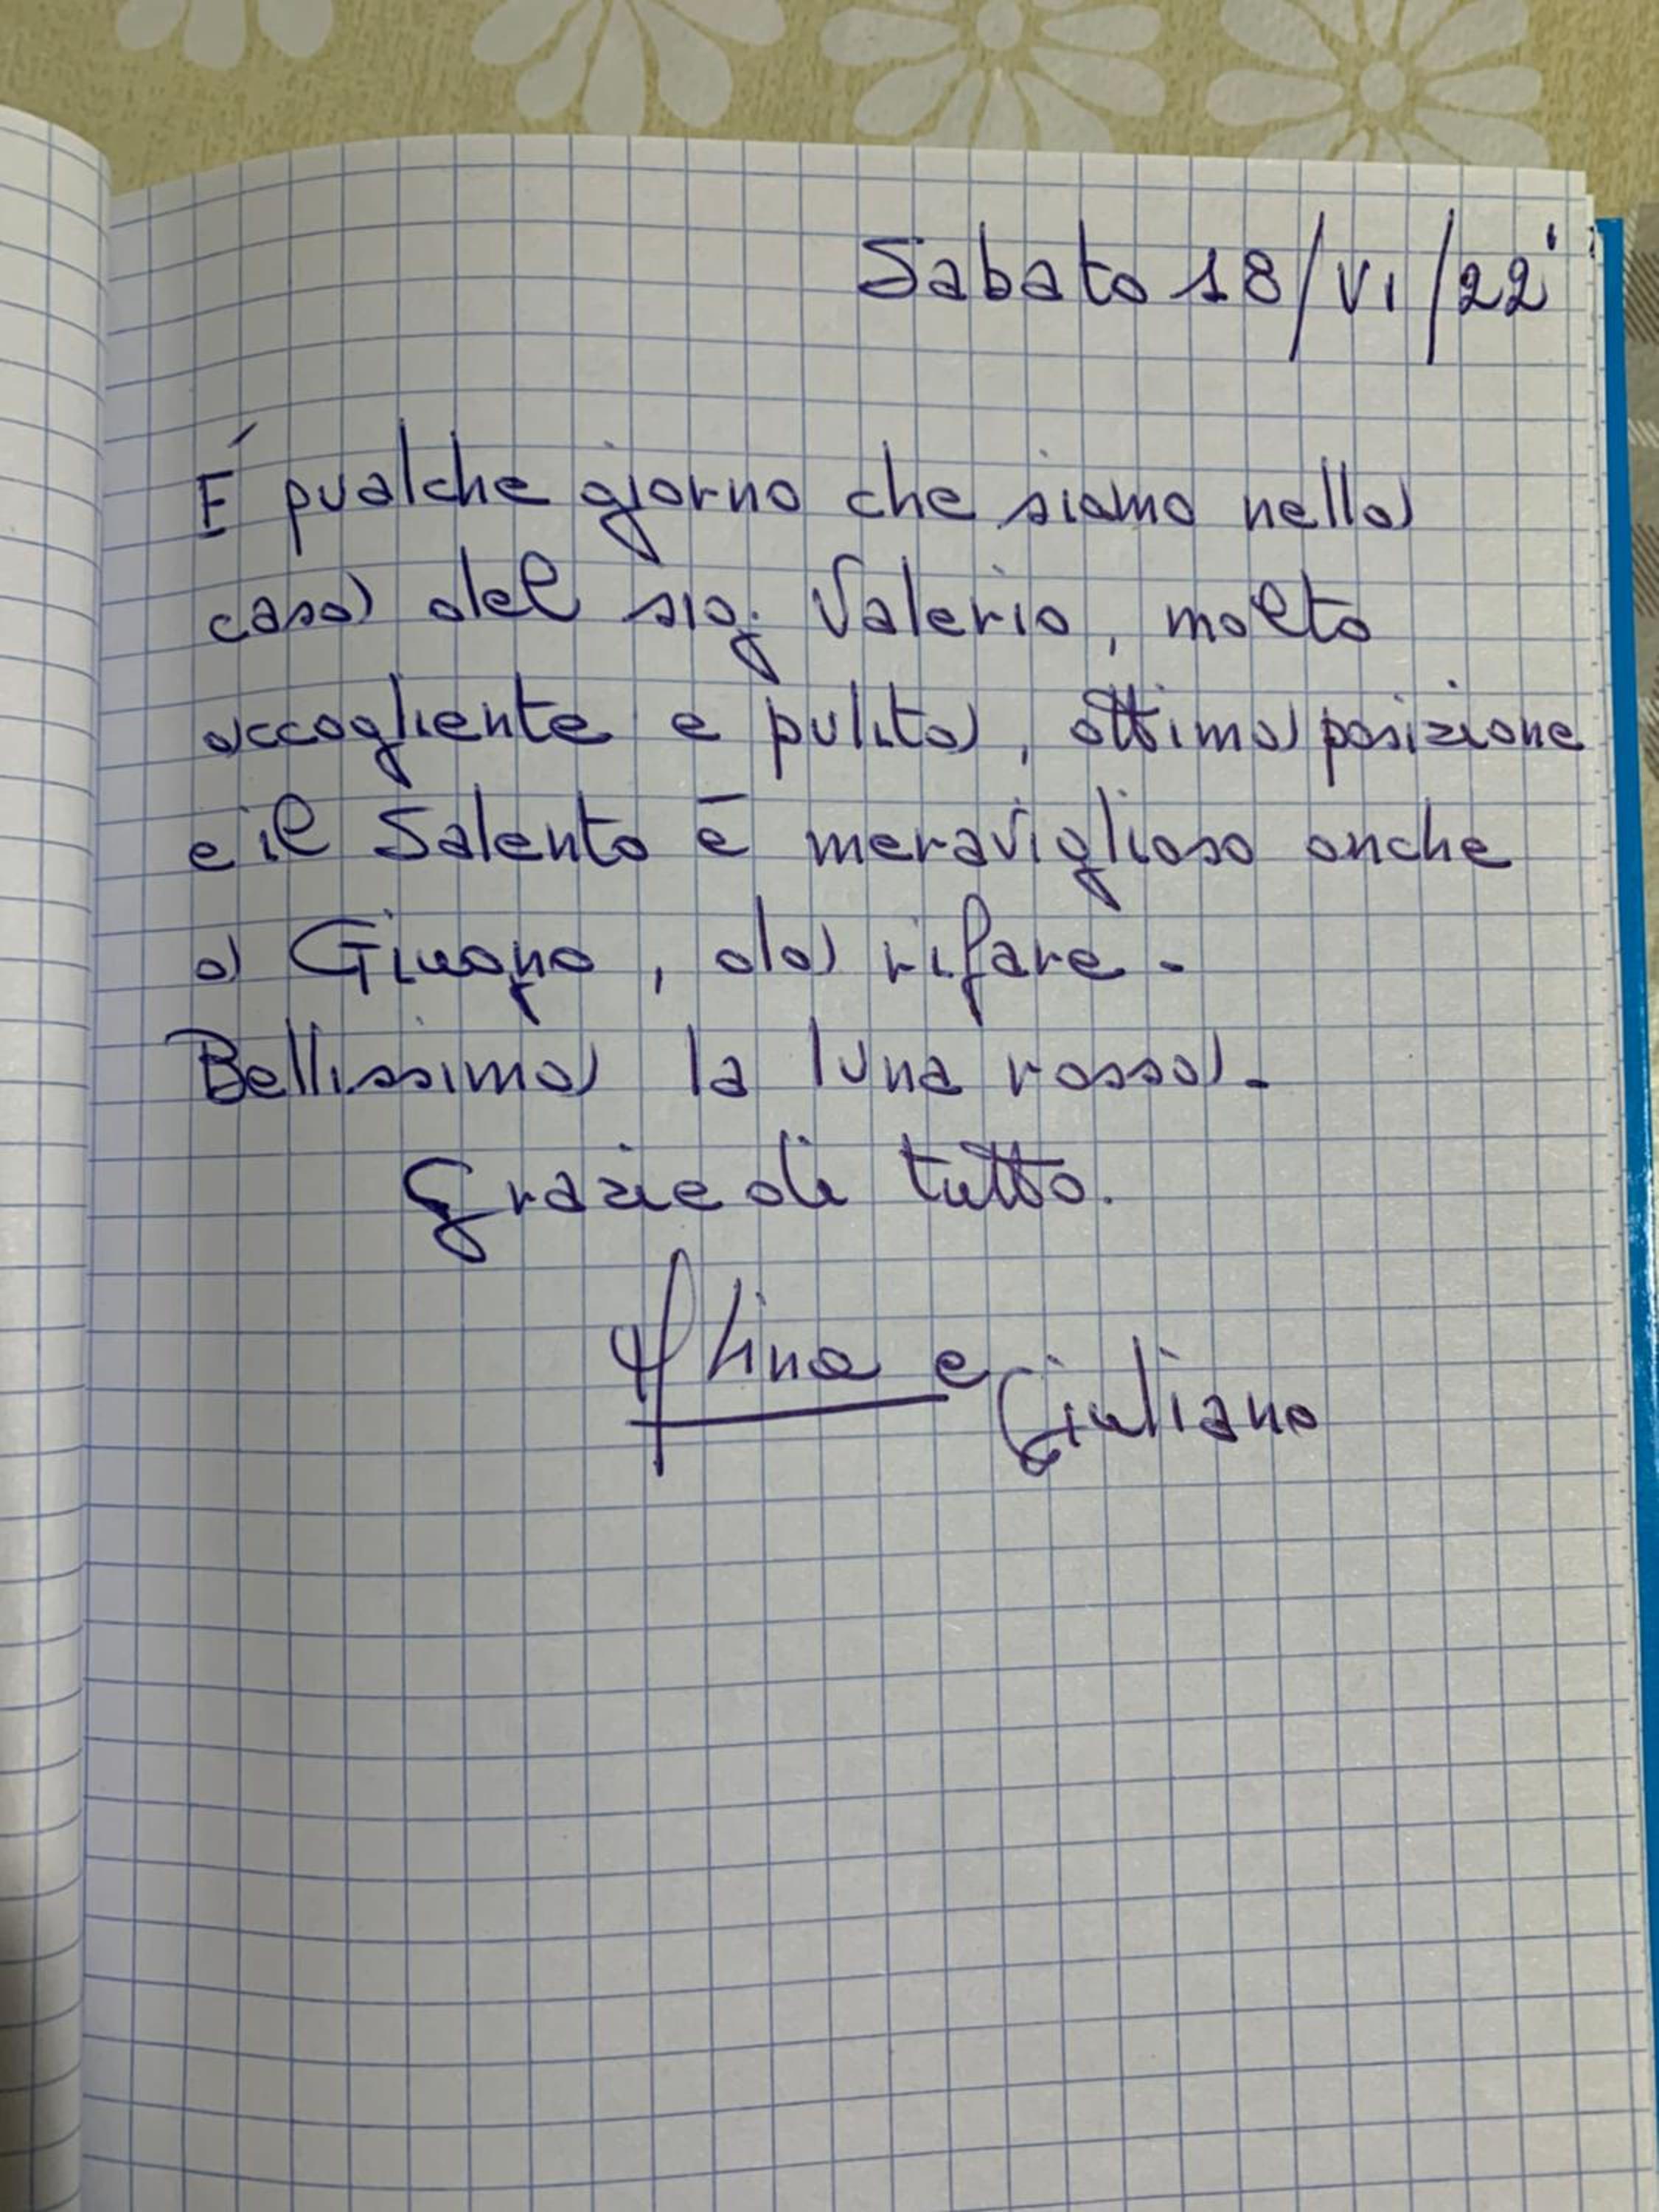 Sabato 18/VI/22'
É qualche giorno che siamo nella
casa del sig. Valerio, molto
accogliente e pulita, ottima posizione
e il Salento è meraviglioso anche
a Giugno, da rifare.
Bellissima la luna rossa.
Grazie di tutto.
Alina e Giuliano